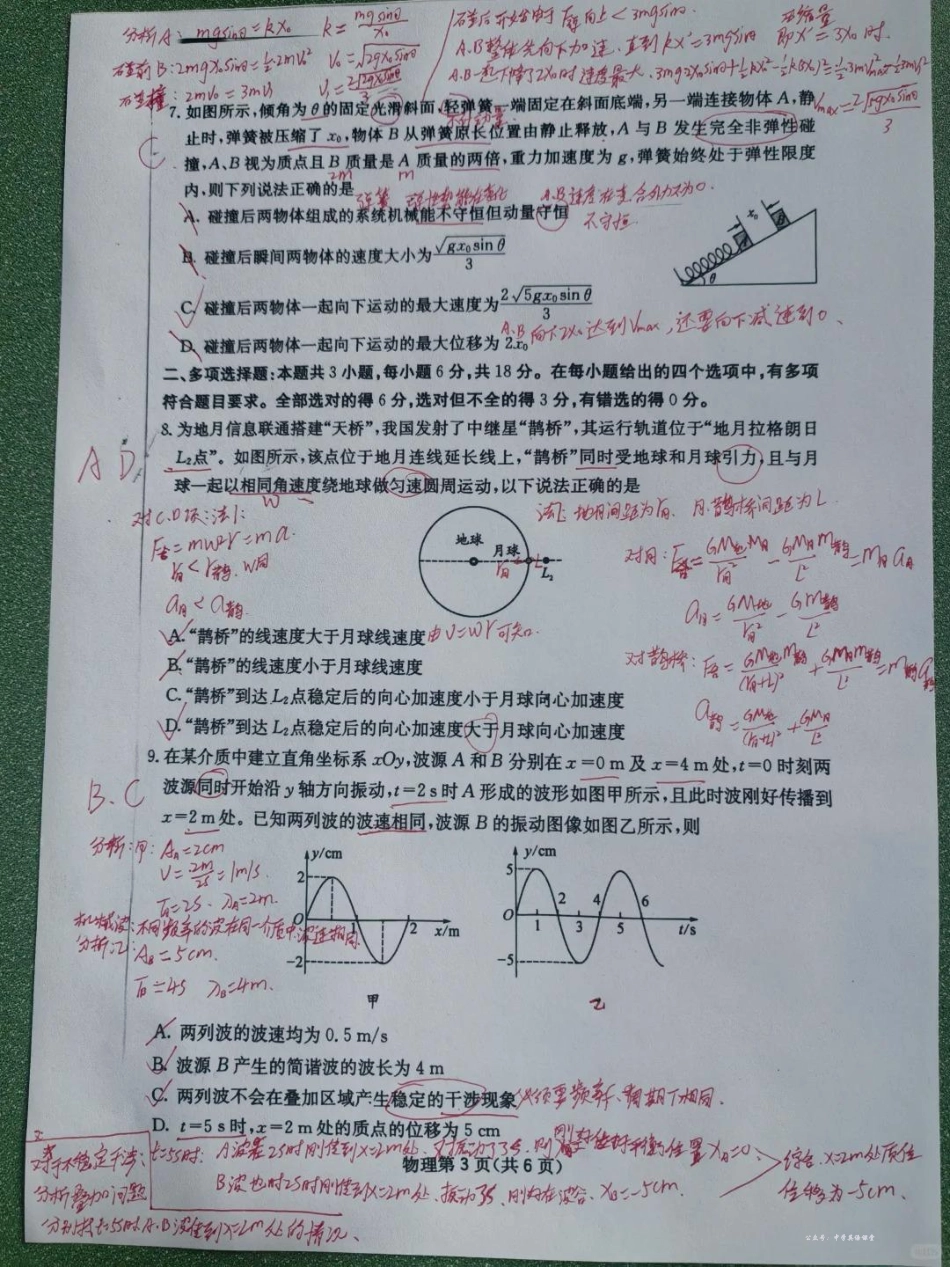 分析A: mgsinθ=kx₀ k=mgsinθ/x₀
碰前B:2mgx₀sinθ=½·2mV₀² V₀=√2gx₀sinθ
2mV₀=3mV₁ V₁=2√2gx₀sinθ/3
A.B整体先向下加速,直到kx'=3mgsinθ 即x'=3x₀时.
7.如图所示,倾角为θ的固定光滑斜面,轻弹簧一端固定在斜面底端,另一端连接物体A,静
止时,弹簧被压缩了x₀,物体B从弹簧原长位置由静止释放,A与B发生完全非弹性碰
撞,A、B视为质点且B质量是A质量的两倍,重力加速度为g,弹簧始终处于弹性限度
2m m
内,则下列说法正确的是
A. 碰撞后两物体组成的系统机械能不守恒但动量守恒
不守恒.
B. 碰撞后瞬间两物体的速度大小为√gx₀sinθ/3
x₀
θ
C. 碰撞后两物体一起向下运动的最大速度为2√5gx₀sinθ/3
D. 碰撞后两物体一起向下运动的最大位移为2x₀
A.B向下2x₀达到Vmax,还要向下减速到0、
二、多项选择题:本题共3小题,每小题6分,共18分。在每小题给出的四个选项中,有多项
符合题目要求。全部选对的得6分,选对但不全的得3分,有错选的得0分。
8.为地月信息联通搭建“天桥”,我国发射了中继星“鹊桥”,其运行轨道位于“地月拉格朗日
A D
L₂点”。如图所示,该点位于地月连线延长线上,“鹊桥”同时受地球和月球引力,且与月
球一起以相同角速度绕地球做匀速圆周运动,以下说法正确的是
W
对C.D项:法1:
F合=mw²r=ma.
r月<r鹊. w同
a月<a鹊.
地球
月球
r月 L
L₂
法2: 地月间距为r月. 月.鹊桥间距为L.
对月:F合=GM地M月/r月²-GM月m鹊/L²=M月a月
a月=GM地/r月²-Gm鹊/L²
A.“鹊桥”的线速度大于月球线速度由V=wr可知.
B.“鹊桥”的线速度小于月球线速度
对鹊桥:F合=GM地m鹊/(r月+L)²+GM月m鹊/L²=m鹊a鹊
C.“鹊桥”到达L₂点稳定后的向心加速度小于月球向心加速度
D.“鹊桥”到达L₂点稳定后的向心加速度大于月球向心加速度
a鹊=GM地/(r月+L)²+GM月/L²
9.在某介质中建立直角坐标系xOy,波源A和B分别在x=0 m及x=4 m处,t=0时刻两
B.C
波源同时开始沿y轴方向振动,t=2 s时A形成的波形如图甲所示,且此时波刚好传播到
x=2 m处。已知两列波的波速相同,波源B的振动图像如图乙所示,则
分析:甲:A_A=2cm
V=2m/2s=1m/s.
T_A=2s、λ_A=2m.
机械波:不同频率的波在同一介质中波速相同
分析:乙:A_B=5cm.
T_B=4s λ_B=4m.
y/cm
2
O
1
2
x/m
-2
甲
y/cm
5
O
1
2
3
4
5
6
t/s
-5
乙
A. 两列波的波速均为0.5 m/s
B. 波源B产生的简谐波的波长为4 m
C. 两列波不会在叠加区域产生稳定的干涉现象
D. t=5 s时,x=2 m处的质点的位移为5 cm
对于不稳定干涉:
分析叠加问题
分别找t=5s时A.B波传到x=2m处的情况、
t=5s时: A波在2s时刚传到x=2m处、又振动了3s、则刚好位于平衡位置X_A=0
物理第3页(共6页)
B波也时2s时刚传到x=2m处、振动3s、则处在波谷、X_B=-5cm.
综合、x=2m处质点
位移为-5cm、
公众号:中学英语课堂